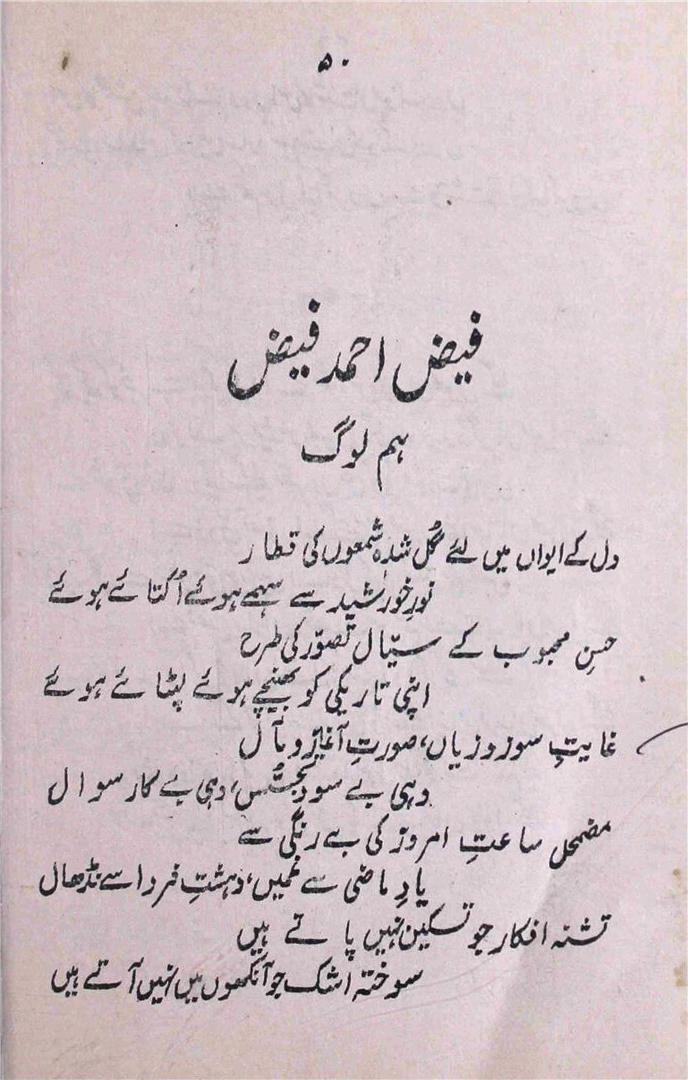 ۵۰
فیض احمد فیض
ہم لوگ
دل کے ایواں میں لئے گُل شدہ شمعوں کی قطار
نورِ خورشید سے سہمے ہوئے اُکتائے ہوئے
حسنِ محبوب کے سیّال تصوّر کی طرح
اپنی تاریکی کو بھینچے ہوئے لپٹائے ہوئے
غایتِ سود و زیاں، صورتِ آغاز و مآل
وہی بے سود تجسّس، وہی بے کار سوال
مضمحل ساعتِ امروز کی بے رنگی سے
یادِ ماضی سے غمیں، دہشتِ فردا سے نڈھال
تشنہ افکار جو تسکین نہیں پاتے ہیں
سوختہ اشک جو آنکھوں میں نہیں آتے ہیں